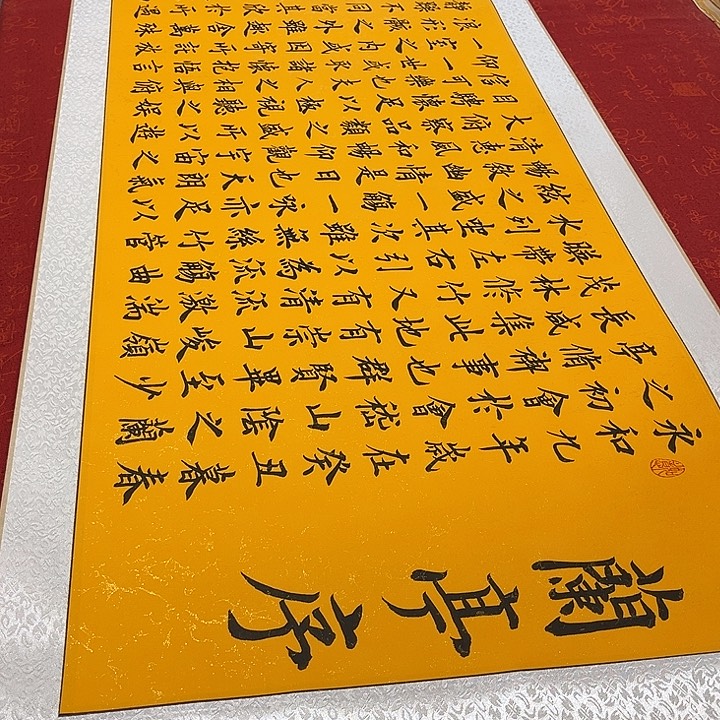 蘭亭序
永和九年歲在癸丑暮春
之初會於會稽山陰之蘭
亭脩禊事也群賢畢至少
長咸集此地有崇山峻嶺
茂林修竹又有清流激湍
暎帶左右引以為流觴曲
水列坐其次雖無絲竹管
絃之盛一觴一詠亦足以
暢敘幽情是日也天朗氣
清惠風和暢仰觀宇宙之
大俯察品類之盛所以遊
目騁懷足以極視聽之娛
信可樂也夫人之相與俯
仰一世或取諸懷抱悟言
一室之內或因寄所託放
浪形骸之外雖趣舍萬殊
不同當其欣於所遇